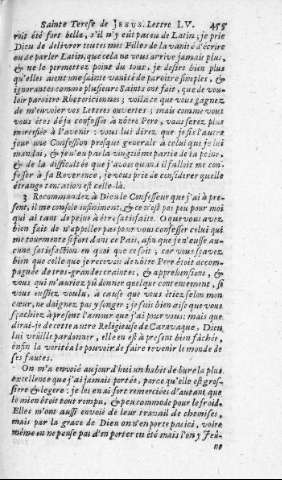 Sainte Terese de Jesus. Lettre LV. 455
roit été fort belle, s'il n'y eût pas eu de Latin; je prie
Dieu de délivrer toutes mes Filles de la vanité d'écrire
ou de parler Latin, que cela ne vous arrive jamais plus,
& ne le permettez point du tout, je desire bien plus
qu'elles aient une sainte vanité de paroitre simples, &
ignorantes comme plusieurs Saints ont fait, que de vou-
loir paroitre Rhetoriciennes; voilà ce que vous gagnez
de m'envoyer vos Lettres ouvertes; mais comme vous
vous êtes déja confessée à nôtre Pere, vous serez plus
mortifiée à l'avenir: vous lui direz que je fis l'autre
jour une Confession presque generale à celui que je lui
mandai, & je n'eu pas la vingtiéme partie de la peine,
& de la difficulté que j'avois quand il falloit me con-
fesser à sa Reverence, je vous prie de considerer quelle
étrange tentation est celle-là.
3. Recommandez à Dieu le Confesseur que j'ai à pre-
sent, il me console infiniment, & ce n'est pas peu pour moi
qui ai tant de peine à être satisfaite. O que vous avez
bien fait de n'appeller pas pour vous confesser celui qui
me tourmente si fort dans ce Païs, afin que je n'eusse au-
cune satisfaction en quoi que ce soit; car vous sçavez
bien que celle que je recevois de nôtre Pere étoit accom-
pagnée de tres-grandes craintes, & apprehensions, &
vous qui m'auriez pû donner quelque contentement, si
vous eussiez voulu, à cause que vous étiez selon mon
cœur, ne daignez pas y songer; je suis bien aise que vous
sçachiez à present l'amour que j'ai pour vous: mais que
dirai-je de cette autre Religieuse de Caravaque, Dieu
lui veuille pardonner, elle en est à present bien fâchée,
enfin la verité a le pouvoir de faire revenir le monde de
ses fautes.
On m'a envoié aujourd'hui un habit de bure la plus
excellence que j'ai jamais portée, parce qu'elle est gros-
siere & legere: je les en ai fort remerciées d'autant que
le mien étoit tout rompu, & peu commode pour le froid.
Elles m'ont aussi envoié de leur travail de chemises,
mais par la grace de Dieu on n'en porte pas ici, voire
même on ne pense pas d'en porter en été mais l'on y Jeu-
ne